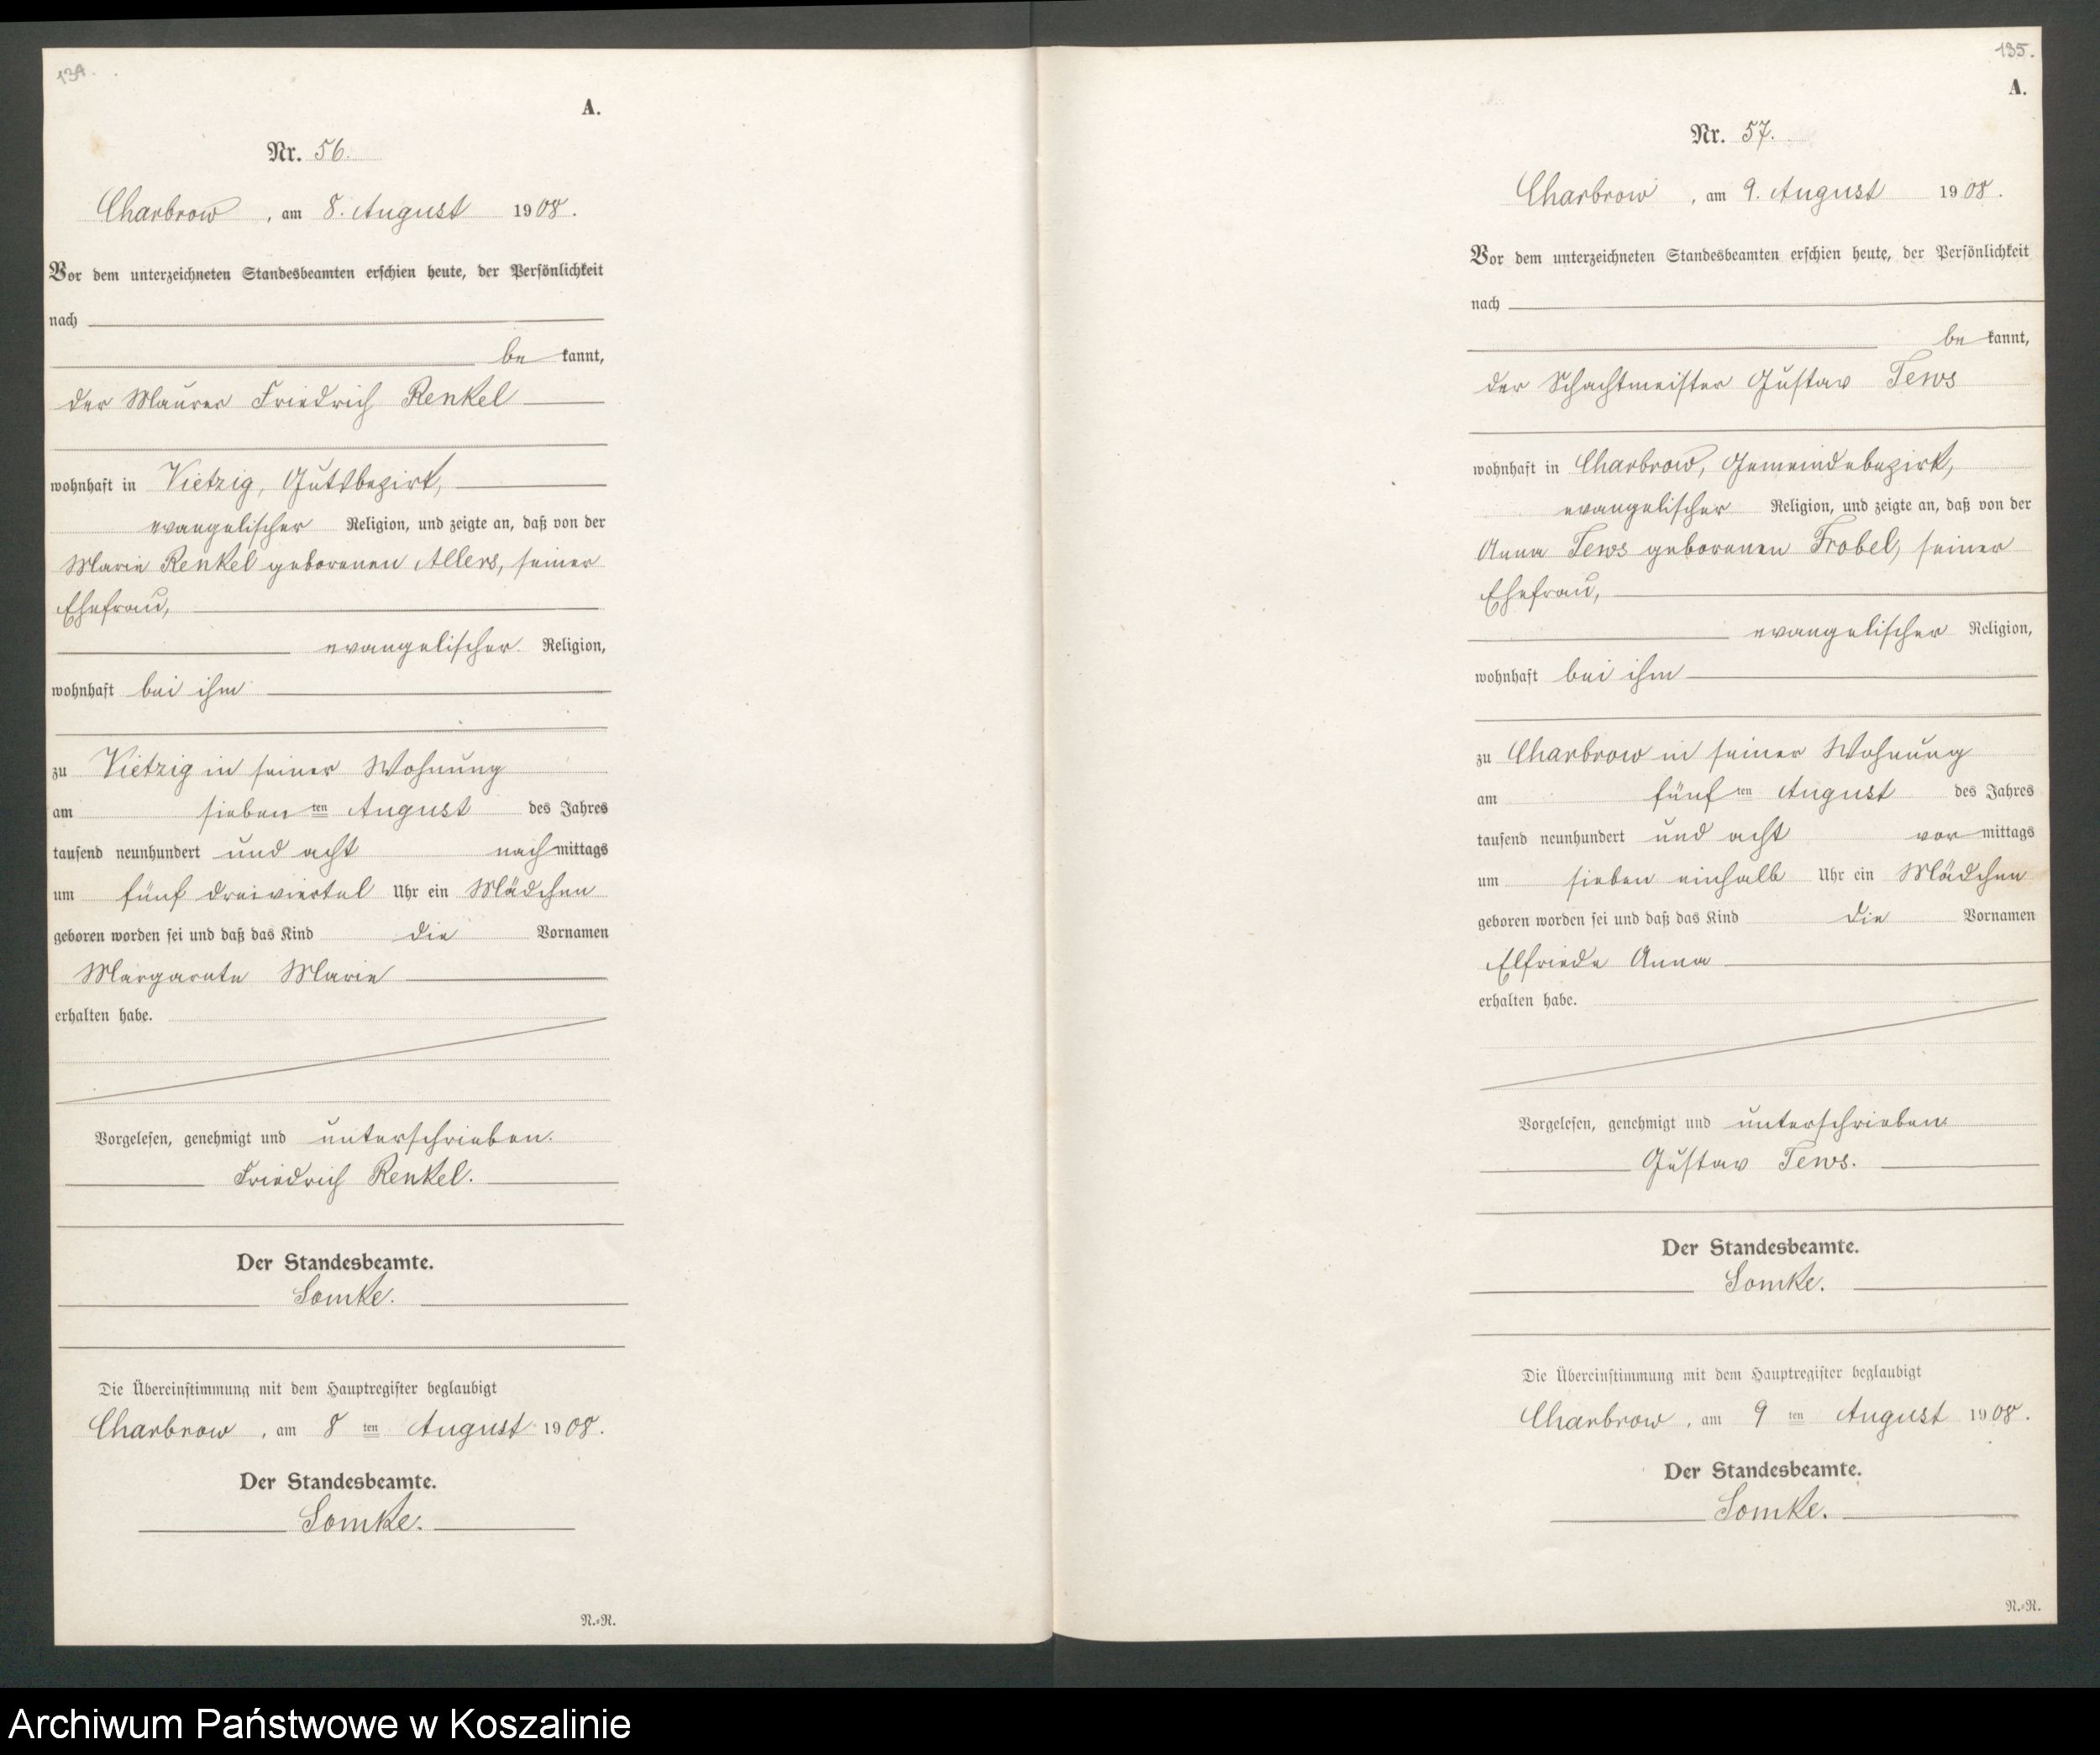 134.
A.
Nr. 56.
Charbrow, am 8. August 1908.
Vor dem unterzeichneten Standesbeamten erschien heute, der Persönlichkeit
nach
be kannt,
der Maurer Friedrich Renkel
wohnhaft in Vietzig, Gutsbezirk,
evangelischer Religion, und zeigte an, daß von der
Marie Renkel geborenen Allers, seiner
Ehefrau,
evangelischer Religion,
wohnhaft bei ihm
zu Vietzig in seiner Wohnung
am sieben ten August des Jahres
tausend neunhundert und acht nachmittags
um fünf dreiviertel Uhr ein Mädchen
geboren worden sei und daß das Kind die Vornamen
Margarete Marie
erhalten habe.
Vorgelesen, genehmigt und unterschrieben.
Friedrich Renkel.
Der Standesbeamte.
Lomke.
Die Übereinstimmung mit dem Hauptregister beglaubigt
Charbrow, am 8 ten August 1908.
Der Standesbeamte.
Lomke.
N.=R.
135.
A.
Nr. 57.
Charbrow, am 9. August 1908.
Vor dem unterzeichneten Standesbeamten erschien heute, der Persönlichkeit
nach
be kannt,
der Schachtmeister Gustav Tews
wohnhaft in Charbrow, Gemeindebezirk,
evangelischer Religion, und zeigte an, daß von der
Anna Tews geborenen Frobel, seiner
Ehefrau,
evangelischer Religion,
wohnhaft bei ihm
zu Charbrow in seiner Wohnung
am fünf ten August des Jahres
tausend neunhundert und acht vor mittags
um sieben einhalb Uhr ein Mädchen
geboren worden sei und daß das Kind die Vornamen
Elfriede Anna
erhalten habe.
Vorgelesen, genehmigt und unterschrieben.
Gustav Tews.
Der Standesbeamte.
Lomke.
Die Übereinstimmung mit dem Hauptregister beglaubigt
Charbrow, am 9 ten August 1908.
Der Standesbeamte.
Lomke.
N.=R.
Archiwum Państwowe w Koszalinie